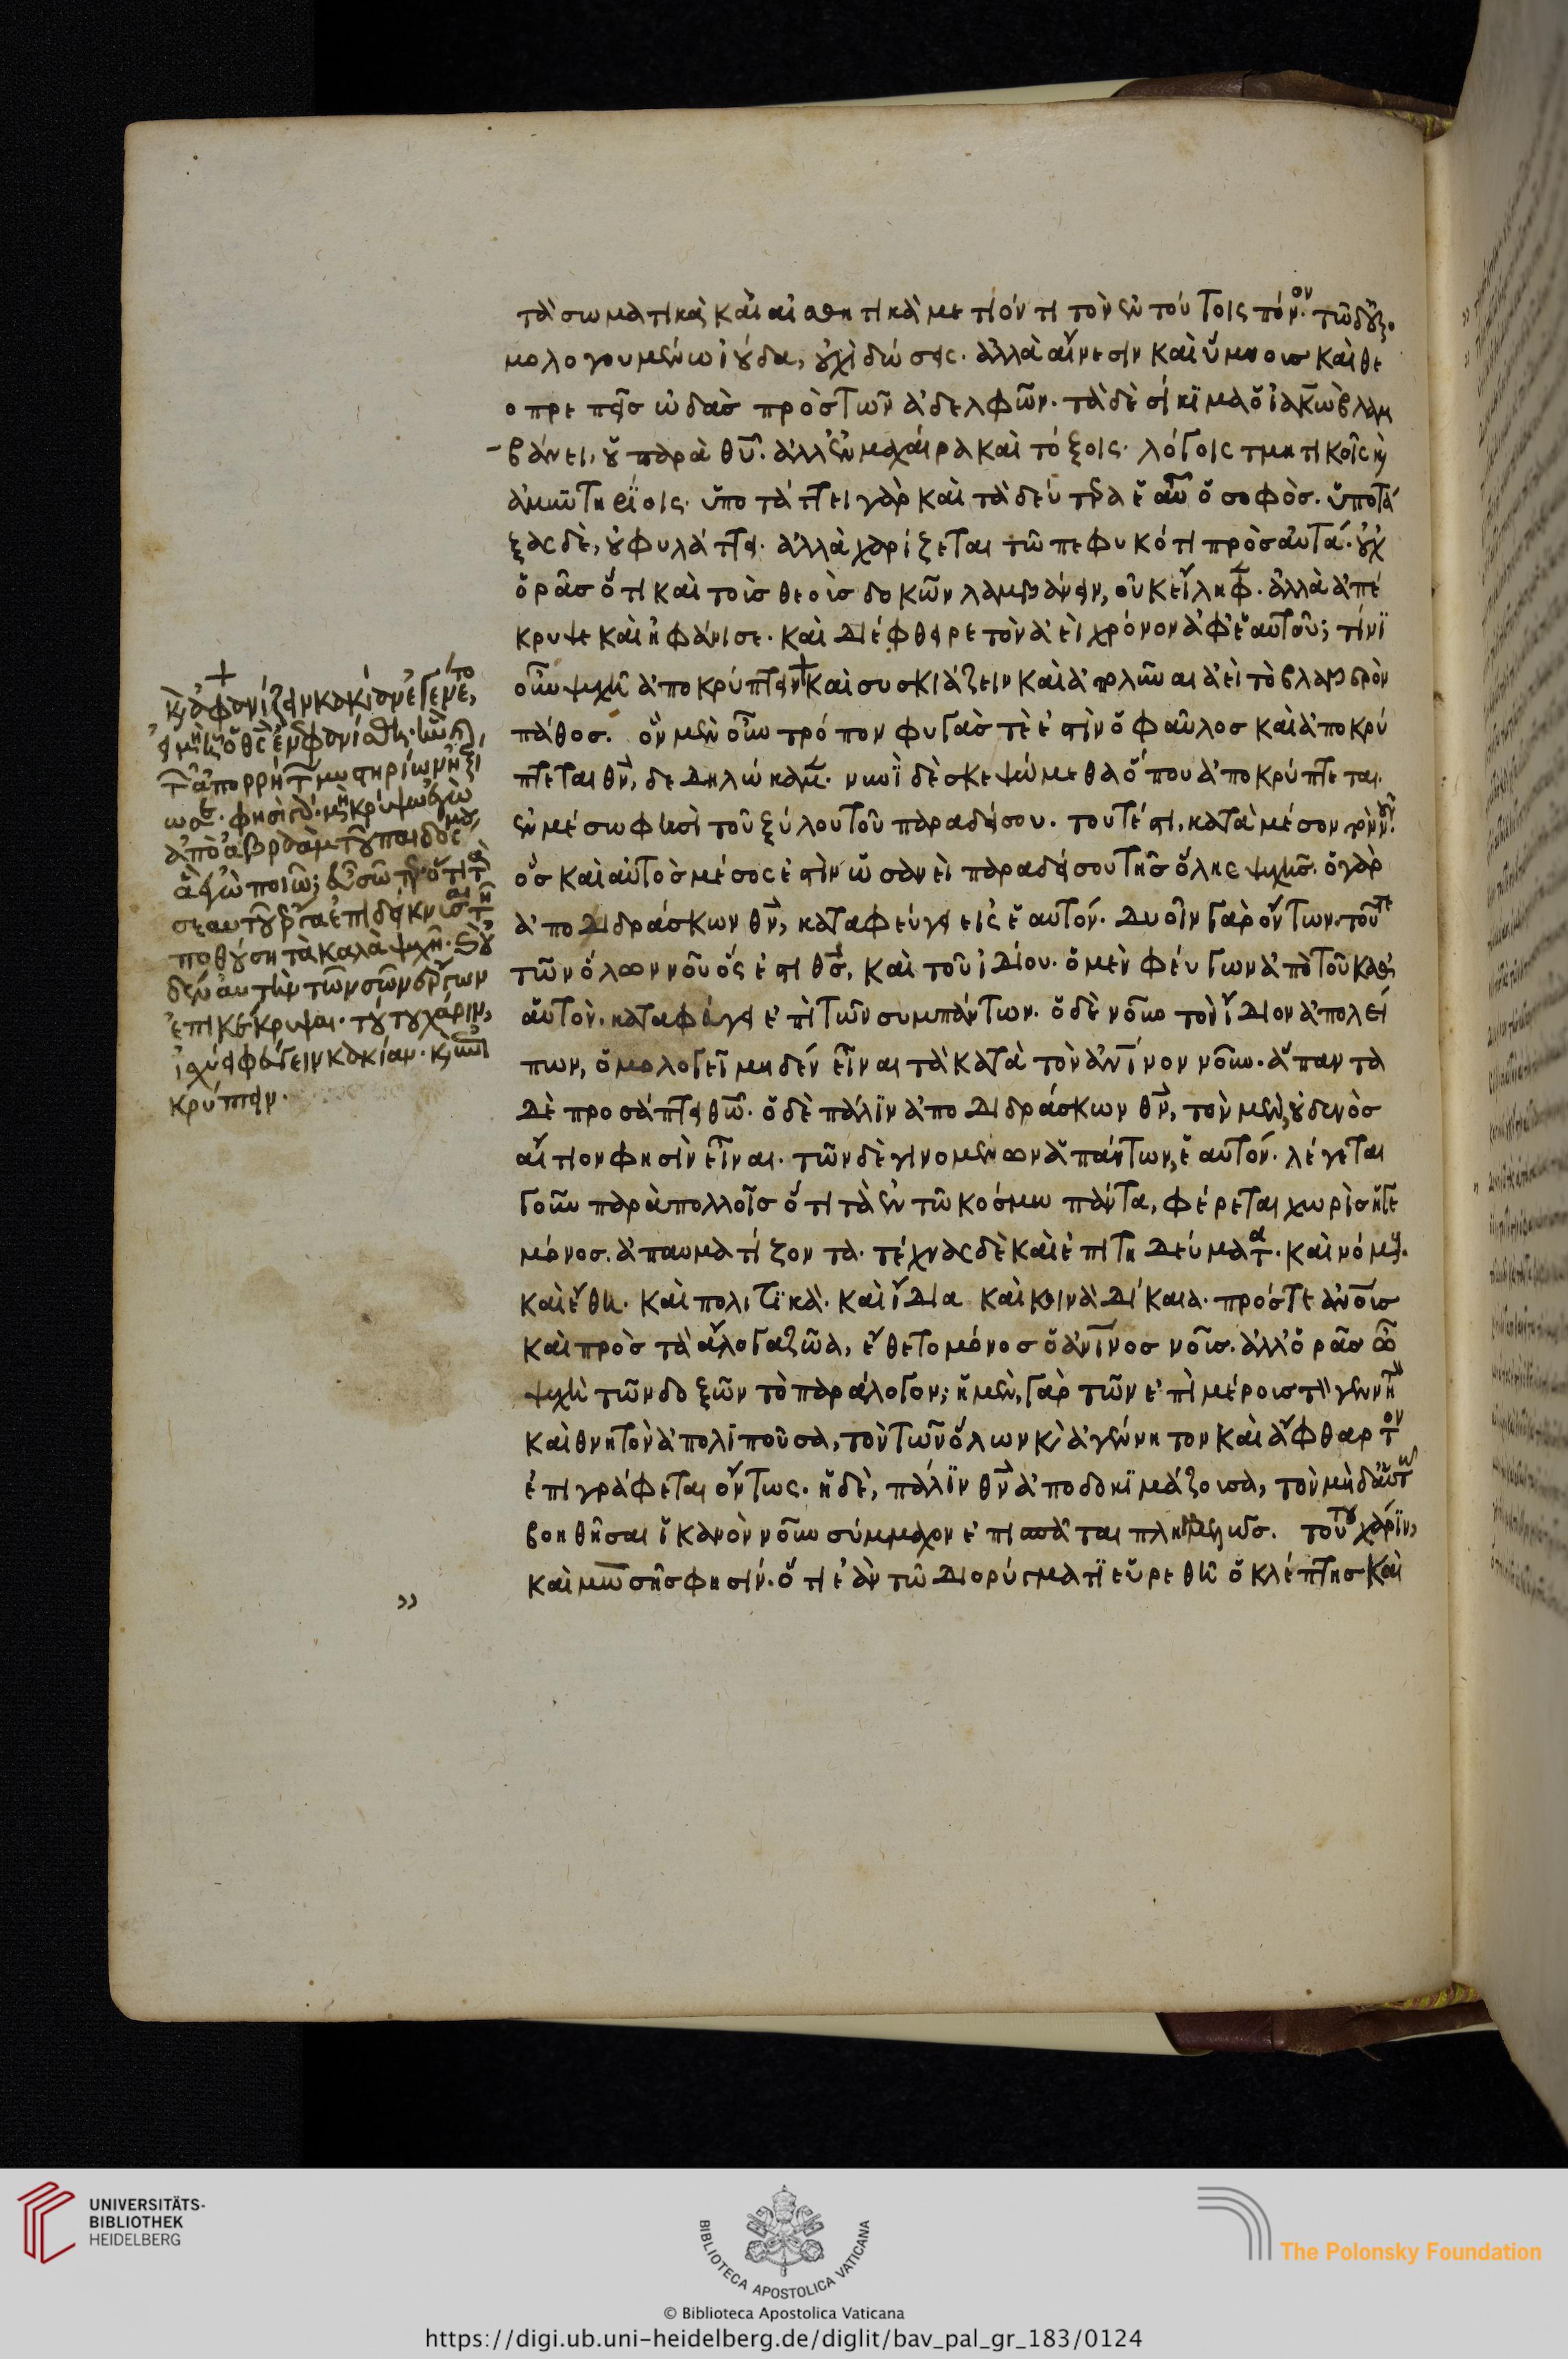 τὰ σωματικὰ καὶ αἰσθητικὰ μετιόντι τὸν ἐν τούτοις πόνον· τῶ δ' ἐξο
μολογουμένω ἰούδα, οὐχὶ δώσεις· ἀλλὰ αἴνεσιν καὶ ὕμνοις καὶ θε
οπρεπεῖς ὠδὰς πρὸς τῶν ἀδελφῶν· τὰ δὲ σίκιμα ὁ ἰακὼβ λαμ
βάνει, οὐ παρὰ θυ· ἀλλ' ἐν μαχαίρα καὶ τόξοις· λόγοις τμητικοῖς κ
ἀμυντηρίοις· ὑποτάττει γὰρ καὶ τὰ δεύτερα ἑαυτῶ ὁ σοφός. ὑποτά
ξας δὲ, οὐ φυλάττει· ἀλλὰ χαρίζεται τῶ πεφυκότι πρὸς αὐτά· οὐχ
ὁρᾶς ὅτι καὶ τοὺς θεοὺς δοκῶν λαμβάνειν, οὐκ εἴληφε· ἀλλὰ ἀπέ
κρυψε καὶ ἠφάνισε· καὶ διέφθειρε τὸν ἀεὶ χρόνον ἀφ' ἑαυτοῦ; τίνι
οὖν ψυχῆ ἀποκρύπτειν καὶ συσκιάζειν καὶ ἀπ ἀεὶ τὸ βλαβερὸν
πάθος. ὃν μὲν οὖν τρόπον φυγάς τέ ἐστιν ὁ φαῦλος καὶ ἀποκρύ
πτεται θν, δεδηλώκαμεν· νυνὶ δὲ σκεψώμεθα ὅπου ἀποκρύπτεται·
ἐν μέσω φησὶ τοῦ ξύλου τοῦ παραδείσου· τουτέστι, κατὰ μέσον τὸν νοῦν·
ὃς καὶ αὐτὸς μέσος ἐστὶν ὡσανεὶ παραδείσου τῆς ὅλης ψυχῆς· ὁ γὰρ
ἀποδιδράσκων θν, καταφεύγει εἰς ἑαυτόν· δυοῖν γὰρ ὄντων· τοῦ τε
τῶν ὅλων νοῦ ὅς ἐστι θς, καὶ τοῦ ἰδίου· ὁ μὲν φεύγων ἀπὸ τοῦ καθ'
αὑτὸν, καταφεύγει ἐπὶ τῶν συμπάντων· ὁ δὲ νοῦν τὸν ἴδιον ἀπολεί
πων, ὁμολογεῖ μηδὲν εἶναι τὰ κατὰ τὸν ἀνινον νοῦν· ἅπαντα
δὲ προσάπτει θω· ὁ δὲ πάλιν ἀποδιδράσκων θν, τὸν μὲν οὐδενὸς
αἴτιον φησὶν εἶναι· τῶν δὲ γινομένων ἁπάντων, ἑαυτόν· λέγεται
γοῦν παρὰ πολλοῖς ὅτι τὰ ἐν τῶ κόσμω πάντα, φέρεται χωρὶς ἡγε
μόνος· ἀπαυματίζοντα· τέχνας δὲ καὶ ἐπιτηδεύματα· καὶ νόμους·
καὶ ἔθη· καὶ πολιτικὰ· καὶ ἴδια καὶ κοινὰ δίκαια· πρός τε ἀνους
καὶ πρὸς τὰ ἄλογα ζῶα, ἔθετο μόνος ὁ ἀνινος νοῦς· ἀλλ' ὁρᾶς ὦ
ψυχὴ τῶν δοξῶν τὸ παράλογον; ἡ μὲν γὰρ τῶν ἐπὶ μέρους τὸν γεννητὸν
καὶ θνητὸν ἀπολιποῦσα, τὸν τῶν ὅλων κ ἀγέννητον καὶ ἄφθαρτον
ἐπιγράφεται ὄντως· ἡ δὲ, πάλιν θν ἀποδοκιμάζουσα, τὸν μηδ' αὑτῶ
βοηθῆσαι ἱκανὸν νοῦν σύμμαχον ἐπισπᾶται πλημμελῶς. τούτου χάριν,
καὶ μωσῆς φησίν· ὅτι ἐὰν τῶ διορύγματι εὑρεθῆ ὁ κλέπτης καὶ
+
κ ἀφανίζειν κακίαν ἐγένετο,
εἰ μὴ ἧ ὁ θς ἐνεφανίσθη· ἣν κ
τῶν ἀπορρήτων μυστηρίων ἠξί
ωσε· φησὶ γὰρ· μὴ κρύψω ἐγὼ
ἀπὸ ἀβραὰμ τοῦ παιδός μου,
ἃ ἐγὼ ποιῶ; εὖ σῶτερ ὅτι τὰ
σεαυτοῦ ἔργα ἐπιδείκνυσαι τῆ
ποθούση τὰ καλὰ ψυχῆ· κ οὐ
δὲν αὐτὴν τῶν σῶν ἔργων
ἐπικέκρυψαι· τούτου χάριν,
ἰσχύει φεύγειν κακίαν· κ
κρύπτειν·
UNIVERSITÄTS-
BIBLIOTHEK
HEIDELBERG
BIBLIOTECA APOSTOLICA VATICANA
The Polonsky Foundation
© Biblioteca Apostolica Vaticana
https://digi.ub.uni-heidelberg.de/diglit/bav_pal_gr_183/0124